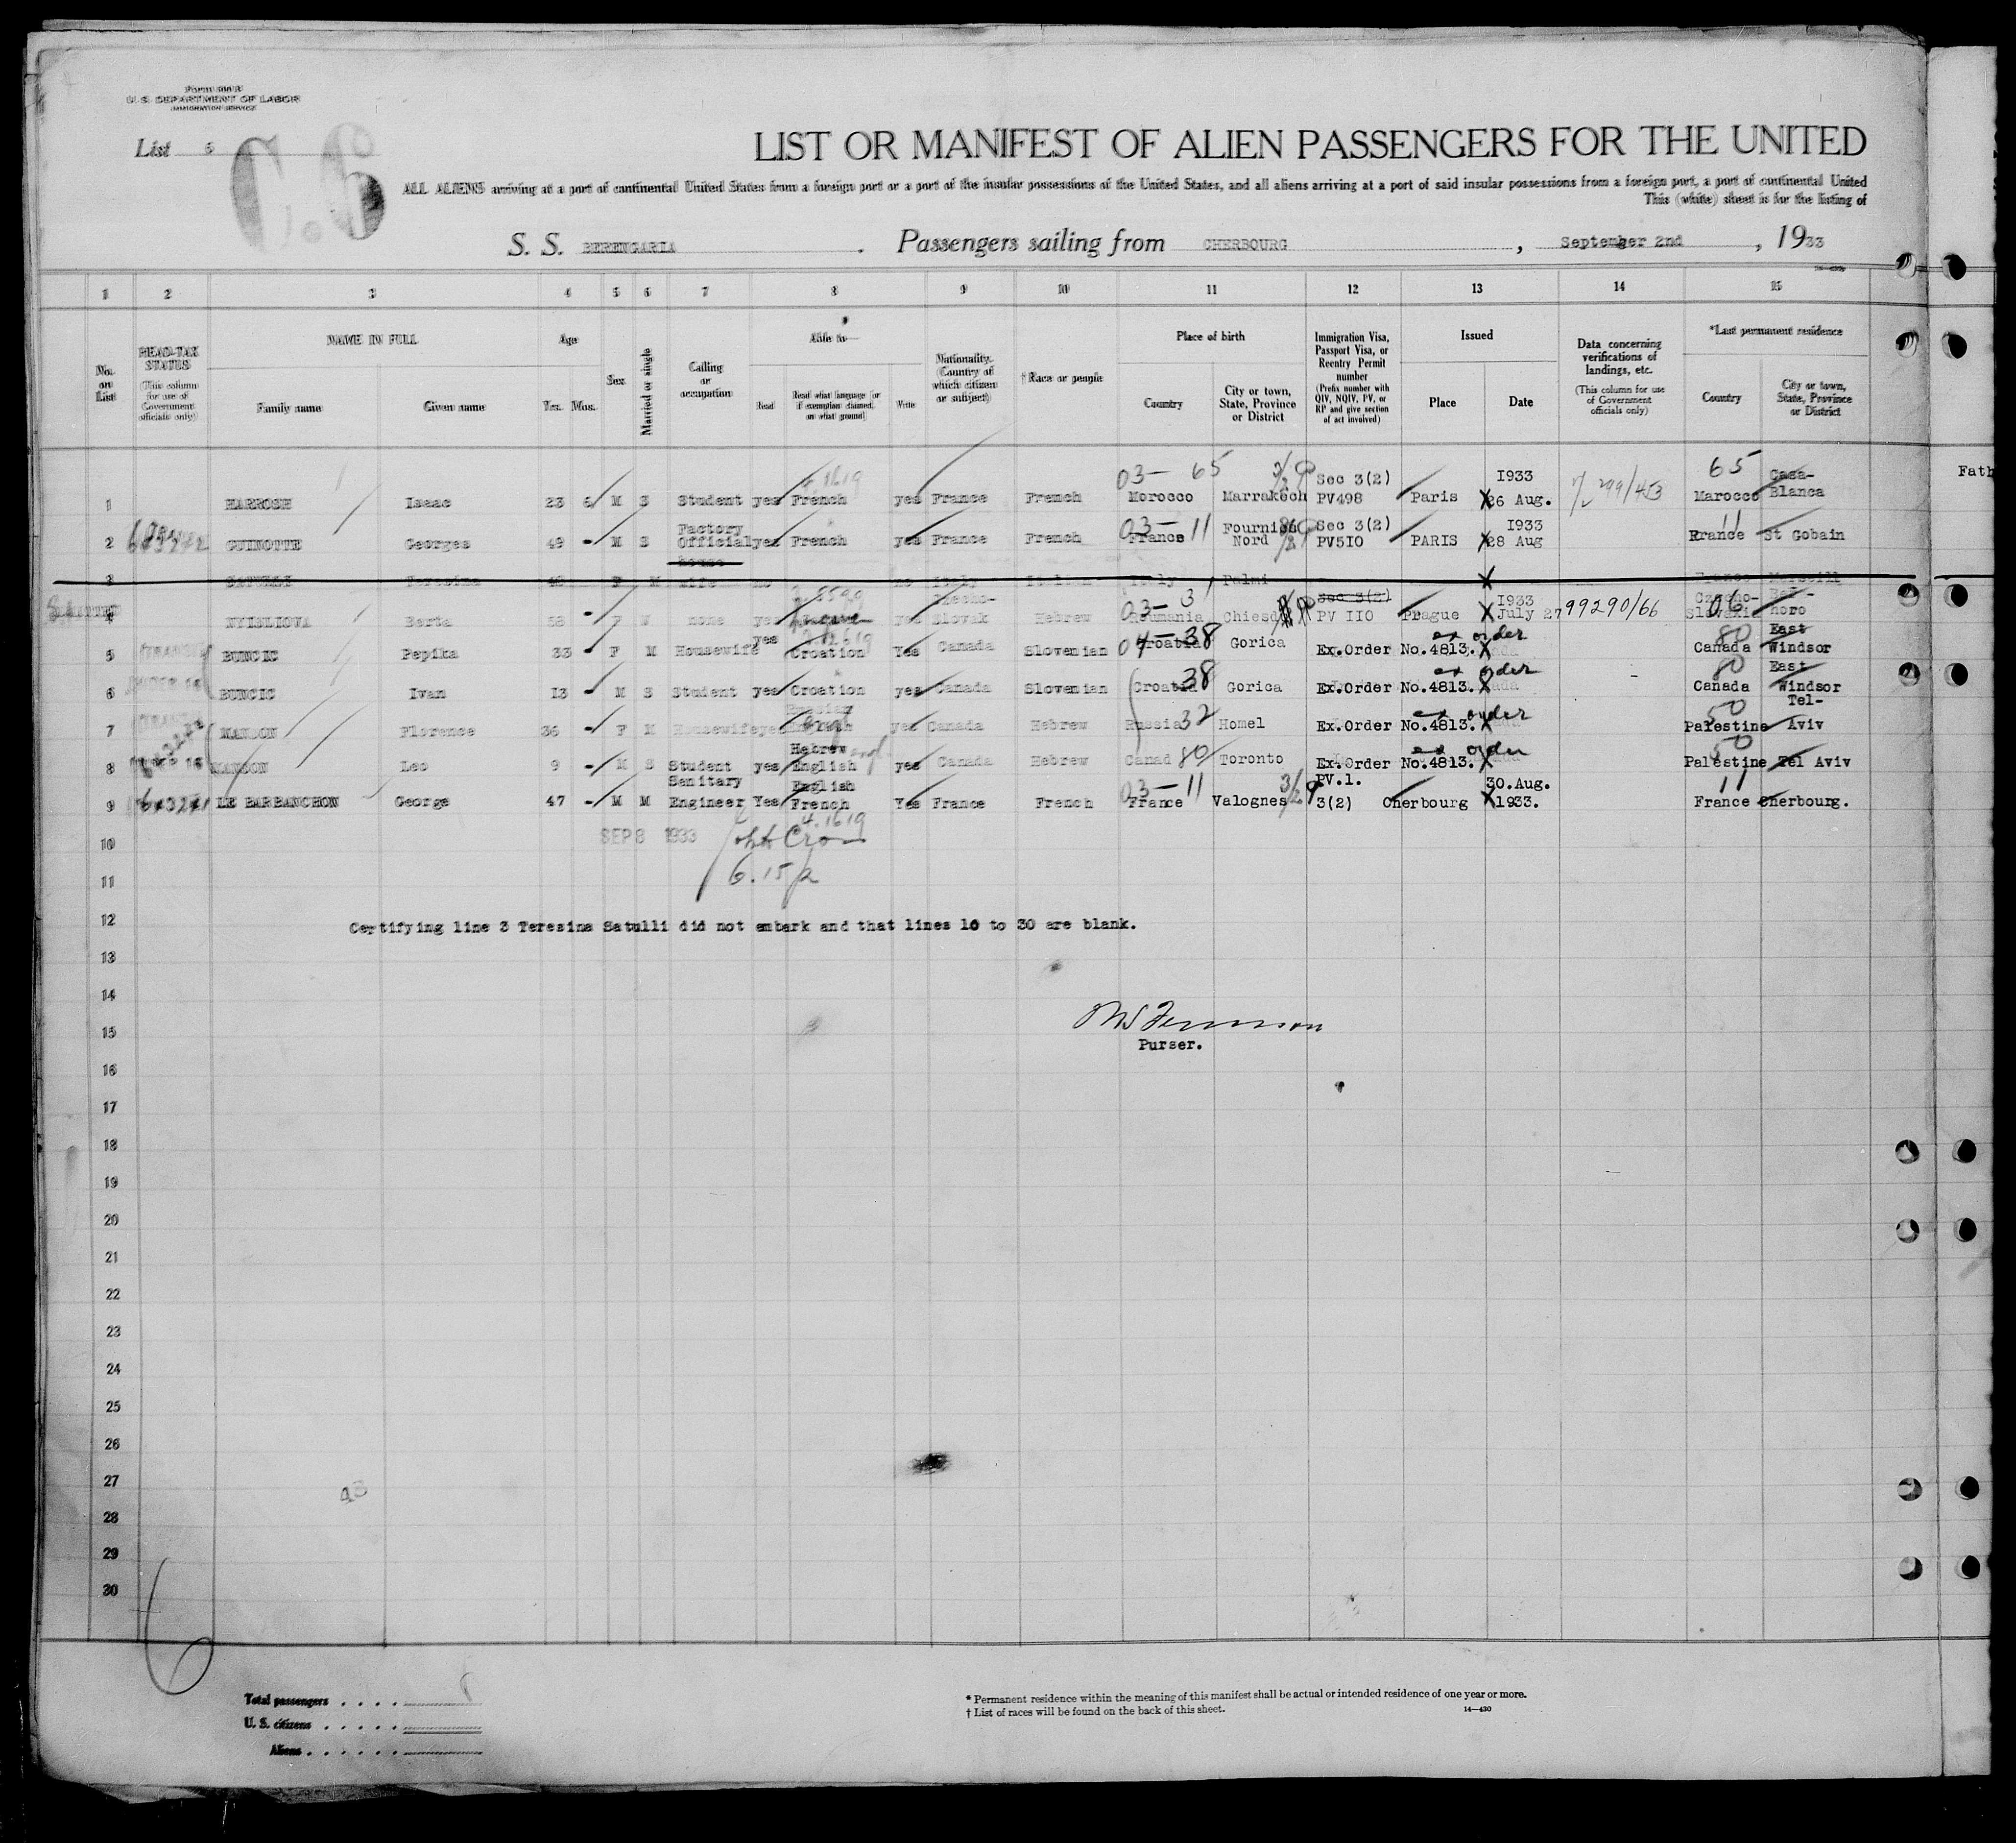 Form 500 B
U. S. DEPARTMENT OF LABOR
IMMIGRATION SERVICE
List 5
C.6
LIST OR MANIFEST OF ALIEN PASSENGERS FOR THE UNITED
ALL ALIENS arriving at a port of continental United States from a foreign port or a port of the insular possessions of the United States, and all aliens arriving at a port of said insular possessions from a foreign port, a port of continental United
This (white) sheet is for the listing of
S. S. BERENGARIA . Passengers sailing from CHERBOURG , September 2nd , 1933
1 2 3 4 5 6 7 8 9 10 11 12 13 14 15
No. on List
HEAD-TAX STATUS (This column for use of Government officials only)
NAME IN FULL
Family name Given name
Age
Yrs. Mos.
Sex
Married or single
Calling or occupation
Able to—
Read Read what language [or if exemption claimed, on what ground] Write
Nationality. (Country of which citizen or subject)
† Race or people
Place of birth
Country City or town, State, Province or District
Immigration Visa, Passport Visa, or Reentry Permit number (Prefix number with QIV, NQIV, PV, or RP and give section of act involved)
Issued
Place Date
Data concerning verifications of landings, etc. (This column for use of Government officials only)
*Last permanent residence
Country City or town, State, Province or District
Fath
1 HARROSH Isaac 23 6 M S Student yes French yes France French 03— 65 Morocco Marrakech Sec 3(2) PV498 Paris 1933 26 Aug. 65 Marocco Casa-Blanca
2 GUINOTTE Georges 49 - M S Factory Official yes French yes France French 03— 11 France Nord Sec 3(2) PV5IO PARIS I933 28 Aug 11 Rrance St Gobain
3 SATULLI Teresina F M wife no no Italy Italian Italy Palmi
4 Berta 58 - F W none yes yes Czecho-Slovak Hebrew 03— 31 Roumania Sec 3(2) PV IIO Prague I933 July 27 99290/66 06 Czecho-Slovakia
5 BUNCIC Pepika 33 - F M Housewife yes Croation Yes Canada Slovenian 04— 38 Croatia Gorica Ex.Order No.4813. ex order 80 Canada East Windsor
6 BUNCIC Ivan I3 - M S Student yes Croation yes Canada Slovenian 38 Croatia Gorica Ex.Order No.4813. ex order 80 Canada East Windsor
7 MANSON Florence 36 - F M Housewife yes Russian yes Canada Hebrew Russia 32 Homel Ex.Order No.4813. ex order 50 Palestine Tel-Aviv
8 MANSON Leo 9 - M S Student yes Hebrew English yes Canada Hebrew Canad 80 Toronto Ex.Order No.4813. ex order 50 Palestine Tel Aviv
9 LE BARBANCHON George 47 - M M Sanitary Engineer Yes English French Yes France French 03— 11 France Valognes PV.1. 3(2) Cherbourg 30.Aug. 1933. 11 France Cherbourg.
10 SEP 8 1933
11
12 Certifying line 3 Teresina Satulli did not embark and that lines 10 to 30 are blank.
13
14
15
Purser.
16
17
18
19
20
21
22
23
24
25
26
27
28
29
30
Total passengers
U. S. citizens
Aliens
* Permanent residence within the meaning of this manifest shall be actual or intended residence of one year or more.
† List of races will be found on the back of this sheet.
14—430